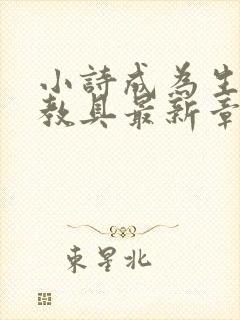 小詩成為生
教具最新章
東星北